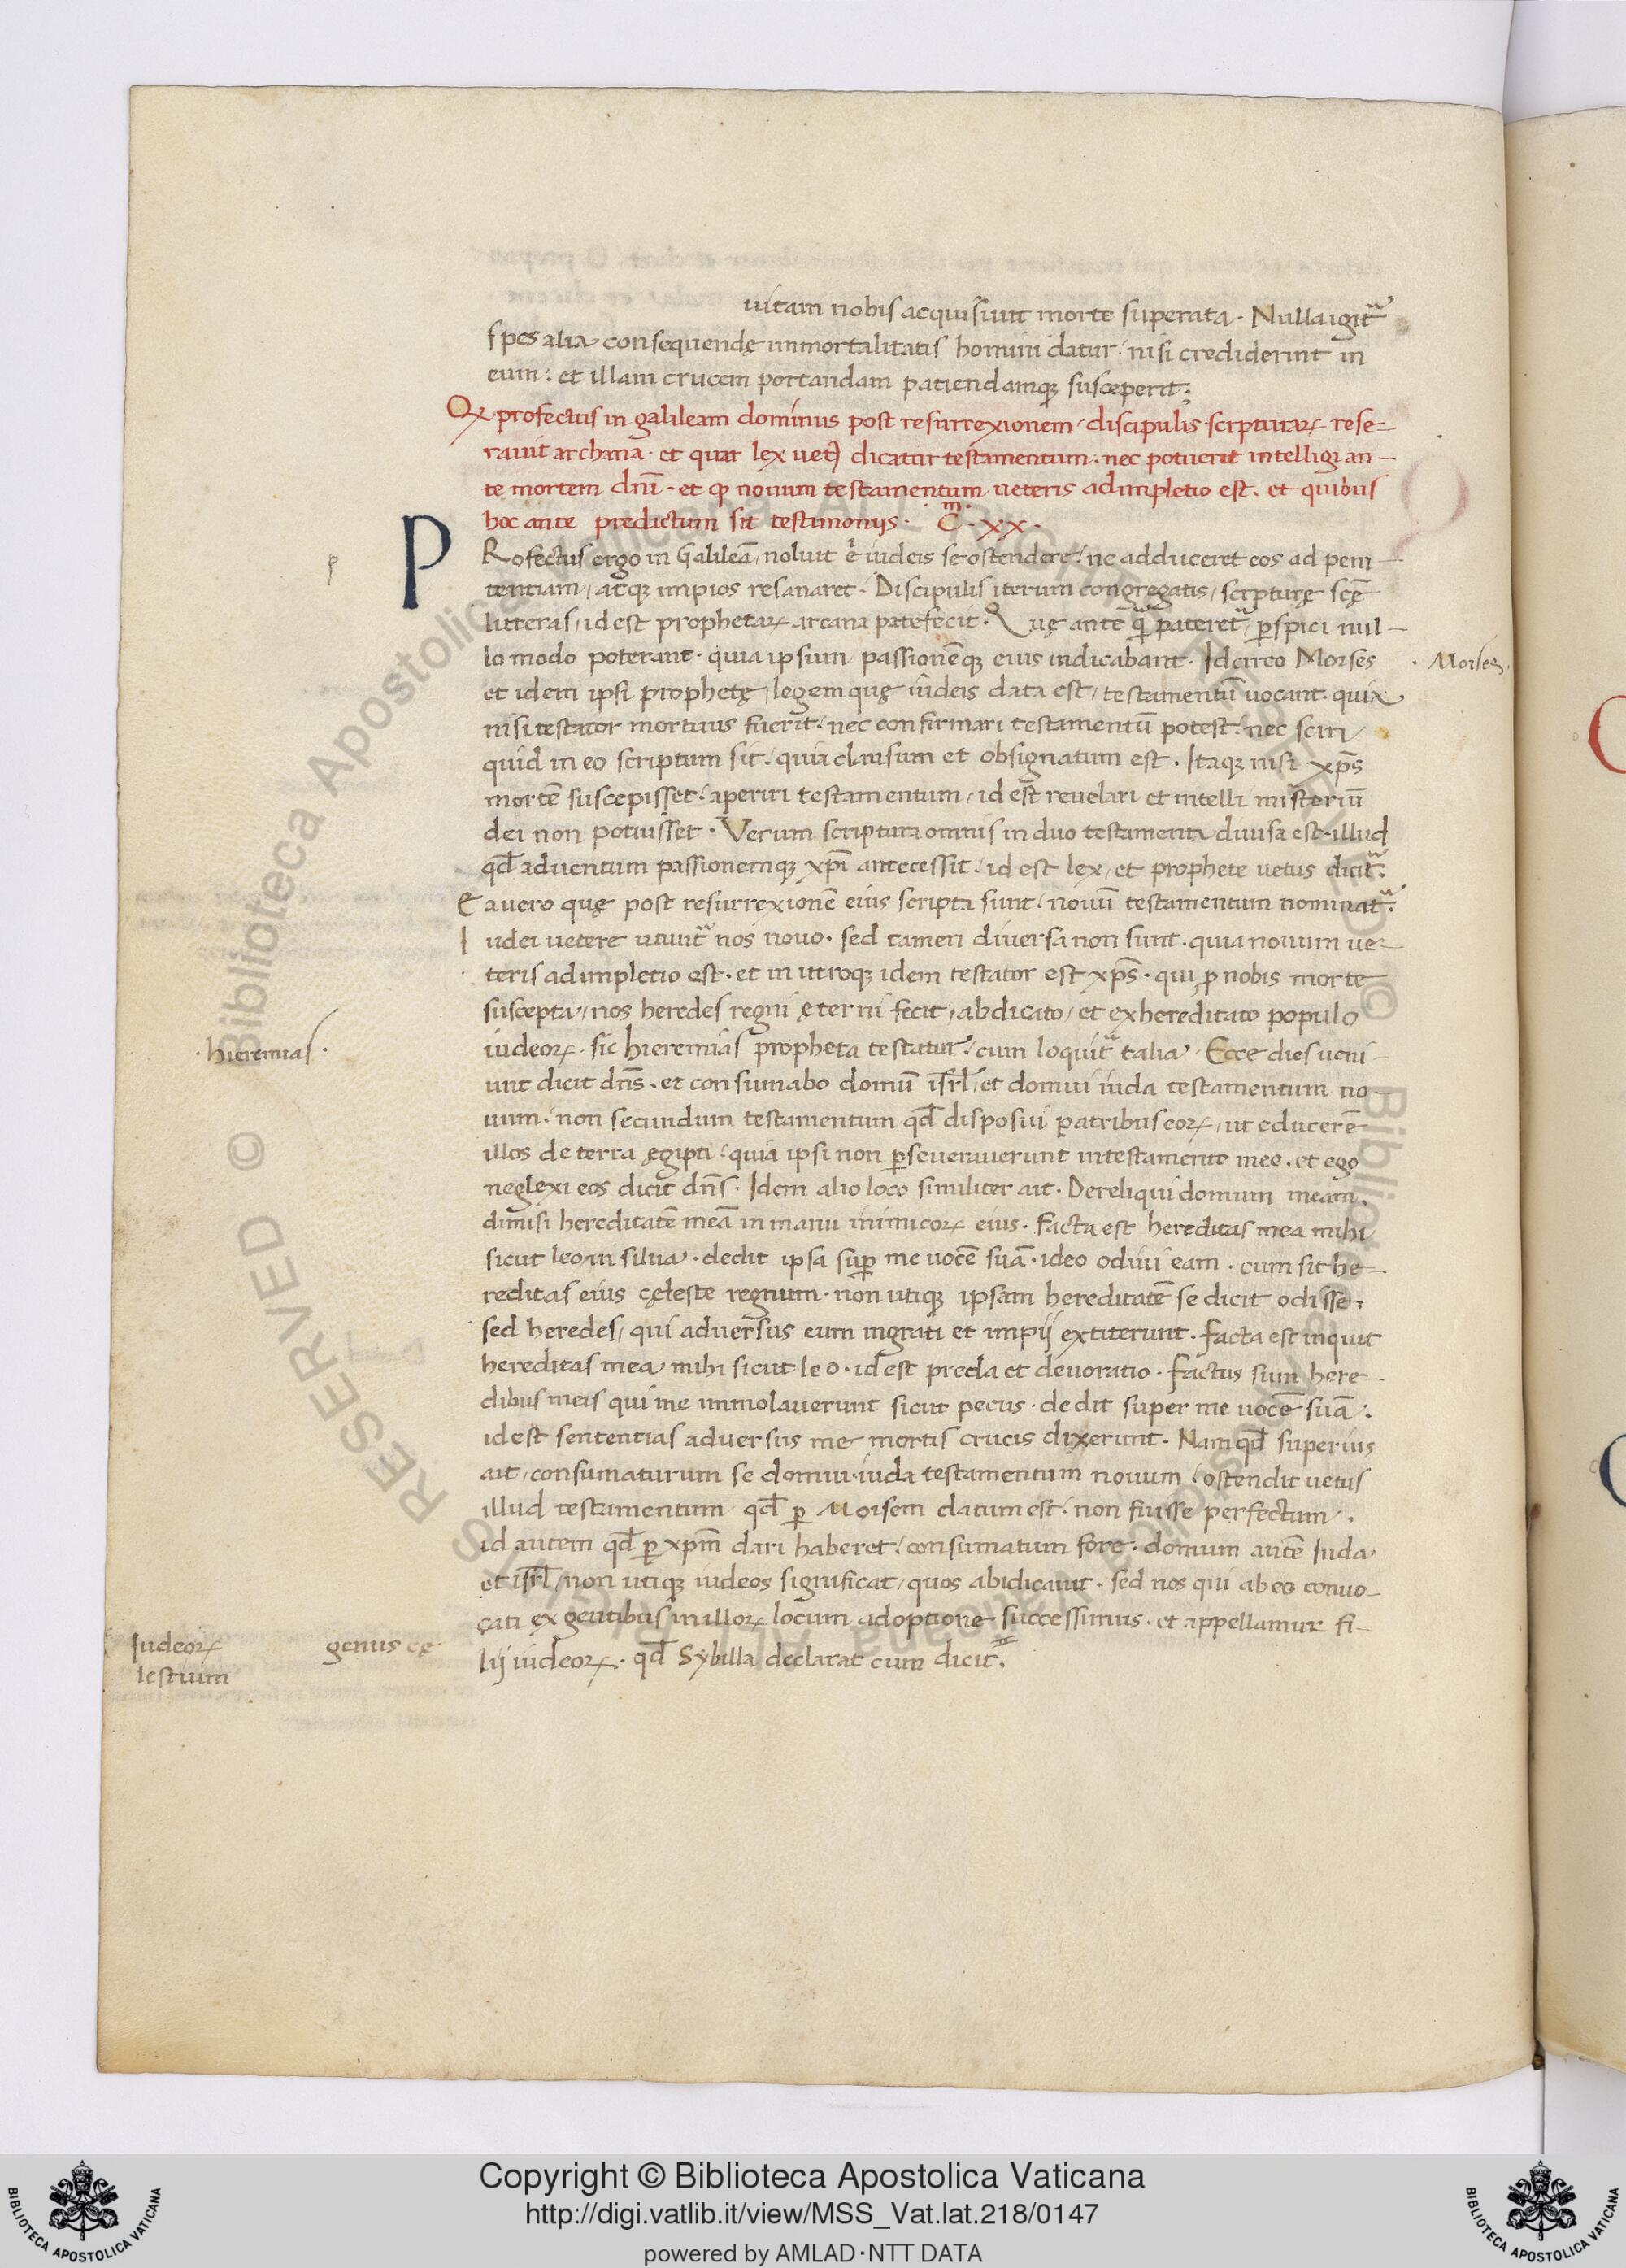 uitam nobis acquisiuit morte superata. Nulla igit᷑
spes alia consequendę immortalitatis homini datur: nisi crediderint in
eum: et illam crucem portandam patiendamqꝫ susceperit;
Qꝫ profectus in galileam dominus post resurrexionem, discipulis scrpturaꝝ rese-
rauit archana. et quar lex uet᷑ dicatur testamentum. nec potuerit intelligi an-
te mortem dn̄i. et qꝫ nouum testamentum ueteris adimpletio est. et quibus
hoc ante predictum sit testimoniis. Cᵐ. xx.
PRofectus ergo in Galileā, noluit ē iudeis se ostendere: ne adduceret eos ad peni-
tentiam, atqꝫ impios resanaret. Discipulis iterum congregatis, scrpturę scę̄
litteras, id est prophetaꝝ arcana patefecit. Quę ante q̄ pateret᷑, ꝑspici nul-
lo modo poterant. quia ipsum passionēqꝫ eius indicabant. Idcirco Moises
. Moises.
et idem ipsi prophetę, legem quę iudeis data est, testamentū uocant. quia
nisi testator mortuus fuerit: nec confirmari testamentū potest: nec sciri
quid in eo scriptum sit: quia clausum et obsignatum est. Itaqꝫ nisi xp̄s
mortē suscepisset: aperiri testamentum, id est reuelari et intelli misteriū
dei non potuisset. Verum scriptura omnis in duo testamenta diuisa est. illud
qd̄ aduentum passionemqꝫ xp̄i antecessit: id est lex, et prophete uetus dicit᷑.
Ea uero quę post resurrexionē eius scripta sunt: nouū testamentum nominat᷑.
Iudei uetere utunt᷑ nos nouo. sed tamen diuersa non sunt. quia nouum ue-
teris adimpletio est. et in utroqꝫ idem testator est xp̄s. qui ꝓ nobis morte
suscepta, nos heredes regni ęterni fecit, abdicato, et exhereditato populo
iudeoꝝ. sic hieremias propheta testatur: cum loquit᷑ talia. Ecce dies ueni-
. hieremias.
unt dicit dn̄s. et consumabo domū isrl̄, et domui iuda testamentum no-
uum. non secundum testamentum qd̄ disposui patribus eoꝝ, ut educerē
illos de terra ęgipti: quia ipsi non ꝑseuerauerunt in testamento meo. et ego
neglexi eos dicit dn̄s. Idem alio loco similiter ait. Dereliqui domum meam.
dimisi hereditatē meā in manu inimicoꝝ eius. Facta est hereditas mea mihi
sicut leo in silua. dedit ipsa suꝑ me uocē suā. ideo odiui eam. cum sit he-
reditas eius cęleste regnum. non utiqꝫ ipsam hereditatē se dicit odisse.
sed heredes, qui aduersus eum ingrati et impij extiterunt. Facta est inquit
hereditas mea mihi sicut leo. id est preda et deuoratio. Factus sum here-
dibus meis qui me immolauerunt sicut pecus. dedit super me uocē suā.
id est sententias aduersus me mortis crucis dixerunt. Nam qd̄ superius
ait, consumaturum se domui iuda testamentum nouum. ostendit uetus
illud testamentum qd̄ ꝑ Moisem datum est. non fuisse perfectum.
id autem qd̄ ꝑ xp̄m dari haberet: consumatum fore. domum autē Iuda
et isrl̄, non utiqꝫ iudeos significat, quos abidicauit. sed nos qui ab eo conuo-
cati ex gentibus in illoꝝ locum adoptione successimus. et appellamur fi-
lij iudeoꝝ. qd̄ Sybilla declarat cum dicit.
Iudeoꝝ genus cę
lestium
Copyright © Biblioteca Apostolica Vaticana
http://digi.vatlib.it/view/MSS_Vat.lat.218/0147
powered by AMLAD·NTT DATA